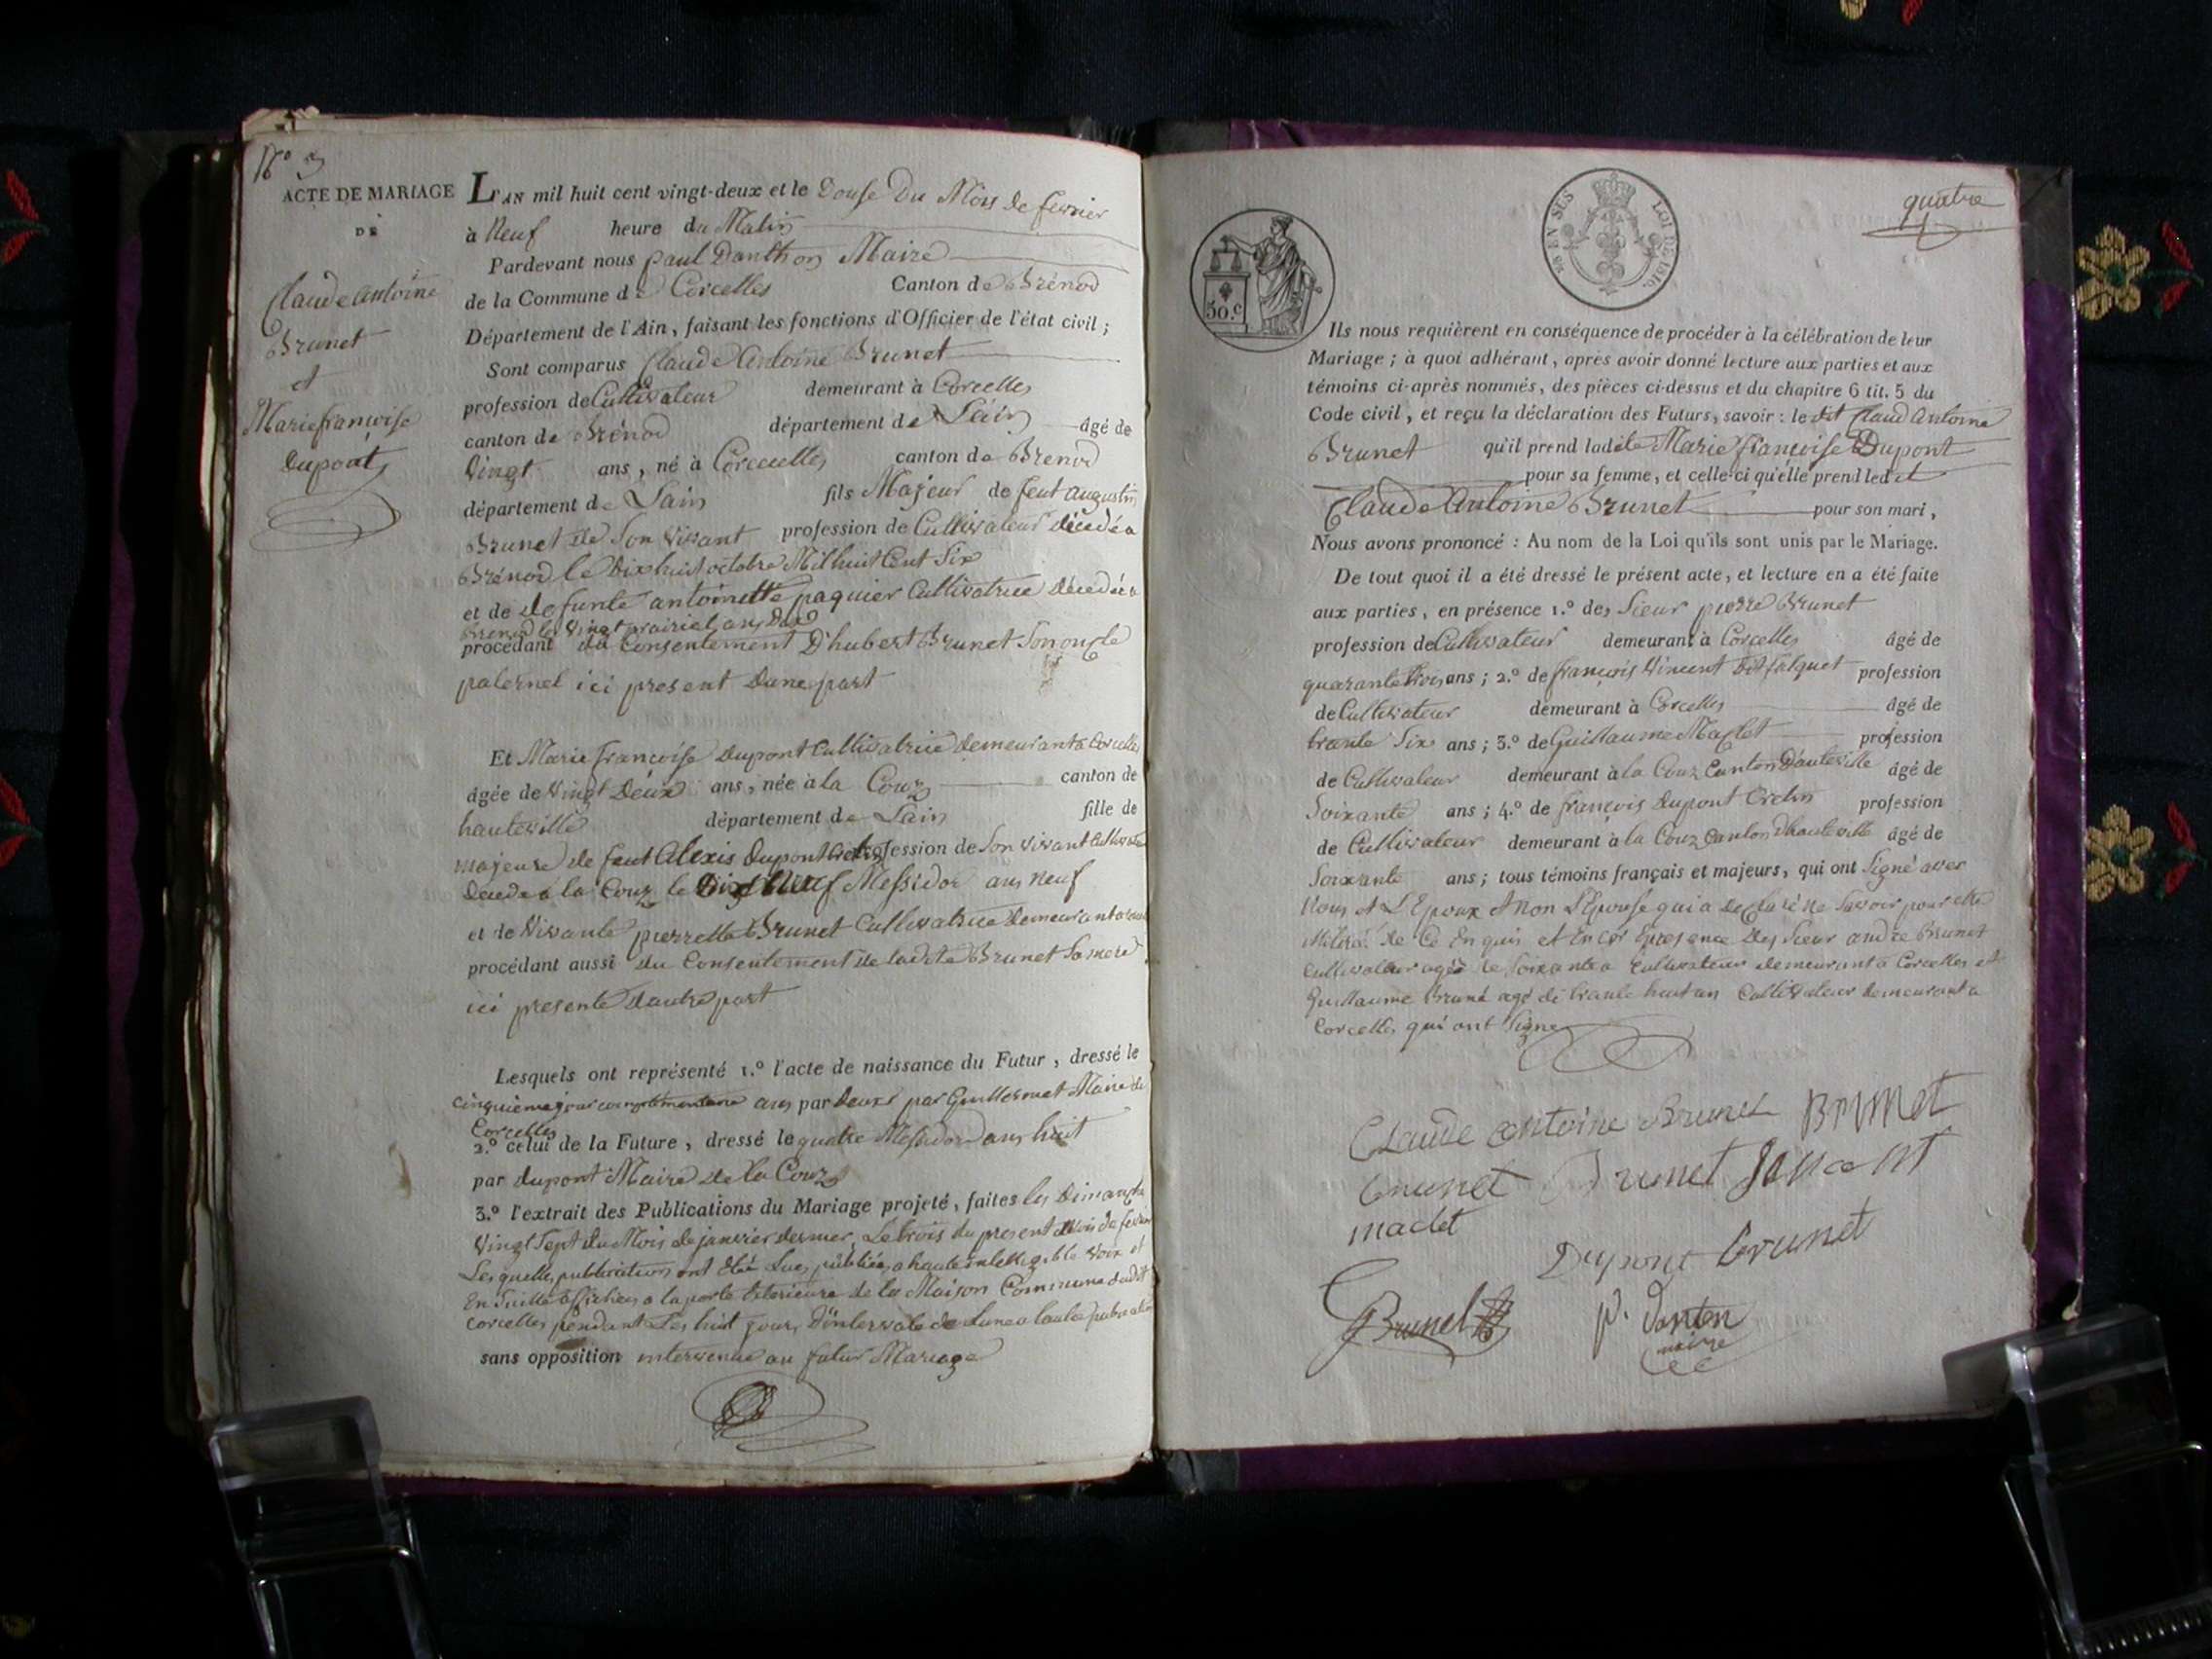 N.° 3
ACTE DE MARIAGE
DE
Claude Antoine
Brunet
et
Marie françoise
Dupont
L'AN mil huit cent vingt-deux et le Douse Du Mois de fevrier
à Neuf heure du Matin
Pardevant nous paul Danthon Maire
de la Commune de Corcelles Canton de Brénod
Département de l'Ain, faisant les fonctions d'Officier de l'état civil;
Sont comparus Claude Antoine Brunet
profession de Cultivateur demeurant à Corcelles
canton de Brénod département de Lain âgé de
Vingt ans, né à Corcelles canton de Brenod
département de Lain fils Majeur de feut augustin
Brunet de Son Vivant profession de Cultivateur décedé a
Brénod le Dix huit octobre Mil huit Cent Six
et de defunte antoinette paquier Cultivatrice Décedée a
Brenod le Vingt prairial an
procédant du Consentement D'hubert Brunet Son oncle
paternel ici present Dune part
Et Marie françoise Dupont Cultivatrice Demeurant a Corcelles
âgée de Vingt Deux ans, née à la Couz canton de
hauteville département de Lain fille de
majeure de feut Alexis Dupont profession de Son vivant
Decede a la Couz le Neuf Messidor ans neuf
et de Vivante pierrette Brunet Cultivatrice Demeurant
procédant aussi du Consentement de ladite Brunet Sa mere
ici presente Dautre part
Lesquels ont représenté 1.° l'acte de naissance du Futur, dressé le
cinquieme jour complementaire ans par Deux par Guillermet Maire de
Corcelles
2.° celui de la Future, dressé le quatre Messidor ans huit
par dupont Maire de la Couz
3.° l'extrait des Publications du Mariage projeté, faites les Dimanche
Vingt Sept du Mois de janvier dernier, Le trois du present Mois de fevrier
Les quelles publications ont été Lues publiées a haute intelligible voix et
En Suitte affichées a la porte Exterieure de la Maison Commune dudit
Corcelles pendant Les huit jours D'intervale de Lune a lautre publication
sans opposition intervenue au futur Mariage
quatre
50.c
LOI DE 1816
Ils nous requièrent en conséquence de procéder à la célébration de leur
Mariage; à quoi adhérant, après avoir donné lecture aux parties et aux
témoins ci-après nommés, des pièces ci-dessus et du chapitre 6 tit. 5 du
Code civil, et reçu la déclaration des Futurs, savoir: le dit Claud Antoine
Brunet qu'il prend ladite Marie françoise Dupont
pour sa femme, et celle-ci qu'elle prend led it
Claude Antoine Brunet pour son mari,
Nous avons prononcé: Au nom de la Loi qu'ils sont unis par le Mariage.
De tout quoi il a été dressé le présent acte, et lecture en a été faite
aux parties, en présence 1.° des Sieur pierre Brunet
profession de Cultivateur demeurant à Corcelles âgé de
quarante trois ans; 2.° de françois Vincent profession
de Cultivateur demeurant à Corcelles âgé de
trante Six ans; 3.° de Guillaume Maclet profession
de Cultivateur demeurant à la Couz Canton Dauteville âgé de
Soixante ans; 4.° de françois Dupont profession
de Cultivateur demeurant à la Couz Canton Dhauteville âgé de
Soixante ans; tous témoins français et majeurs, qui ont Signé avec
Nous et L'Epoux et Non L'Epouse qui a declaré Ne Savoir pour etre
de Ce En quis et Encor Epresence Des Sieur andre Brunet
Cultivateur agé de Soixante a Cultivateur demeurant a Corcelles et
Guillaume Brunet agé de trante huit an Cultivateur demeurant a
Corcelles qui ont Signe
Claude Antoine Brunet Brunet
Brunet Brunet
maclet
Dupont Brunet
Brunet p. Danton
maire